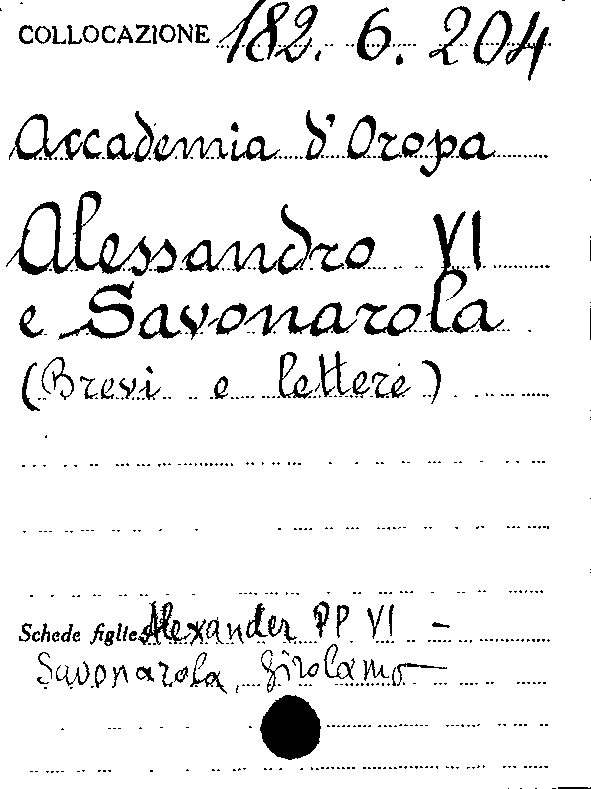 COLLOCAZIONE 182. 6. 204
Accademia d'Oropa
Alessandro VI
e Savonarola
(Brevi e lettere)
Schede figlie: Alexander PP VI –
Savonarola, Girolamo